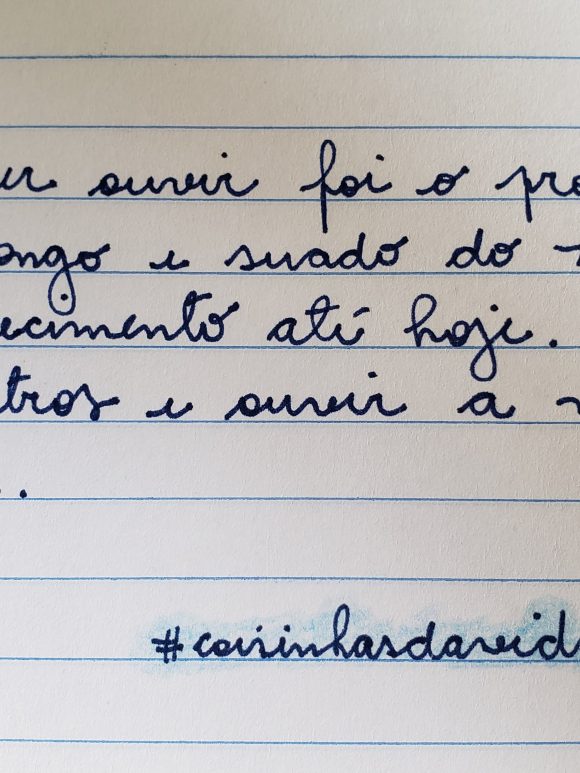 er ouvir foi o pro
ongo e suado do
ecimento até hoje.
tros e ouvir a
..
#coisinhasdavid